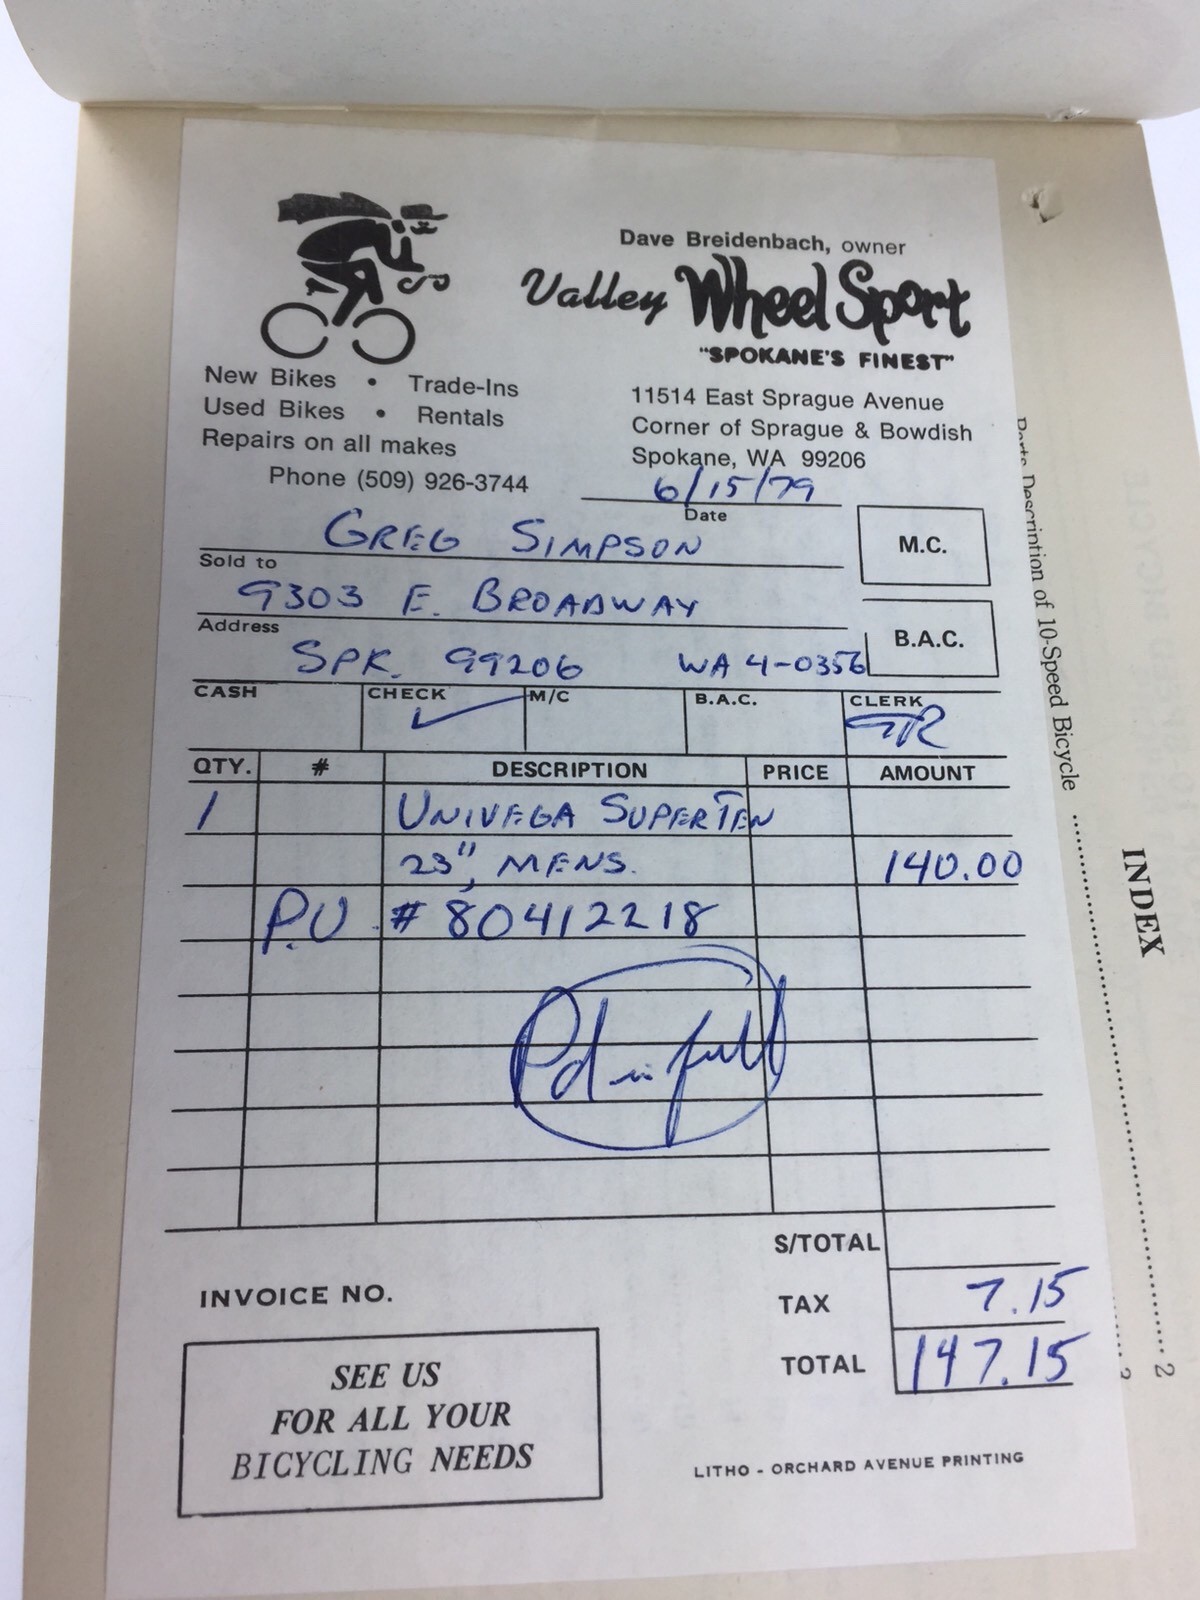 Dave Breidenbach, owner
Valley Wheel Sport
"SPOKANE'S FINEST"
New Bikes • Trade-Ins
Used Bikes • Rentals
Repairs on all makes
Phone (509) 926-3744
11514 East Sprague Avenue
Corner of Sprague & Bowdish
Spokane, WA 99206
6/15/79
Date
M.C.
GREG SIMPSON
Sold to
9303 E. BROADWAY
Address
B.A.C.
SPK. 99206 WA 4-0356
CASH CHECK M/C B.A.C. CLERK
QTY. # DESCRIPTION PRICE AMOUNT
1 UNIVEGA SUPERTEN
23", MENS. 140.00
P.U # 80412218
Pd in full
S/TOTAL
INVOICE NO.
TAX 7.15
TOTAL 147.15
SEE US
FOR ALL YOUR
BICYCLING NEEDS
LITHO - ORCHARD AVENUE PRINTING
INDEX
Parts Description of 10-Speed Bicycle
2